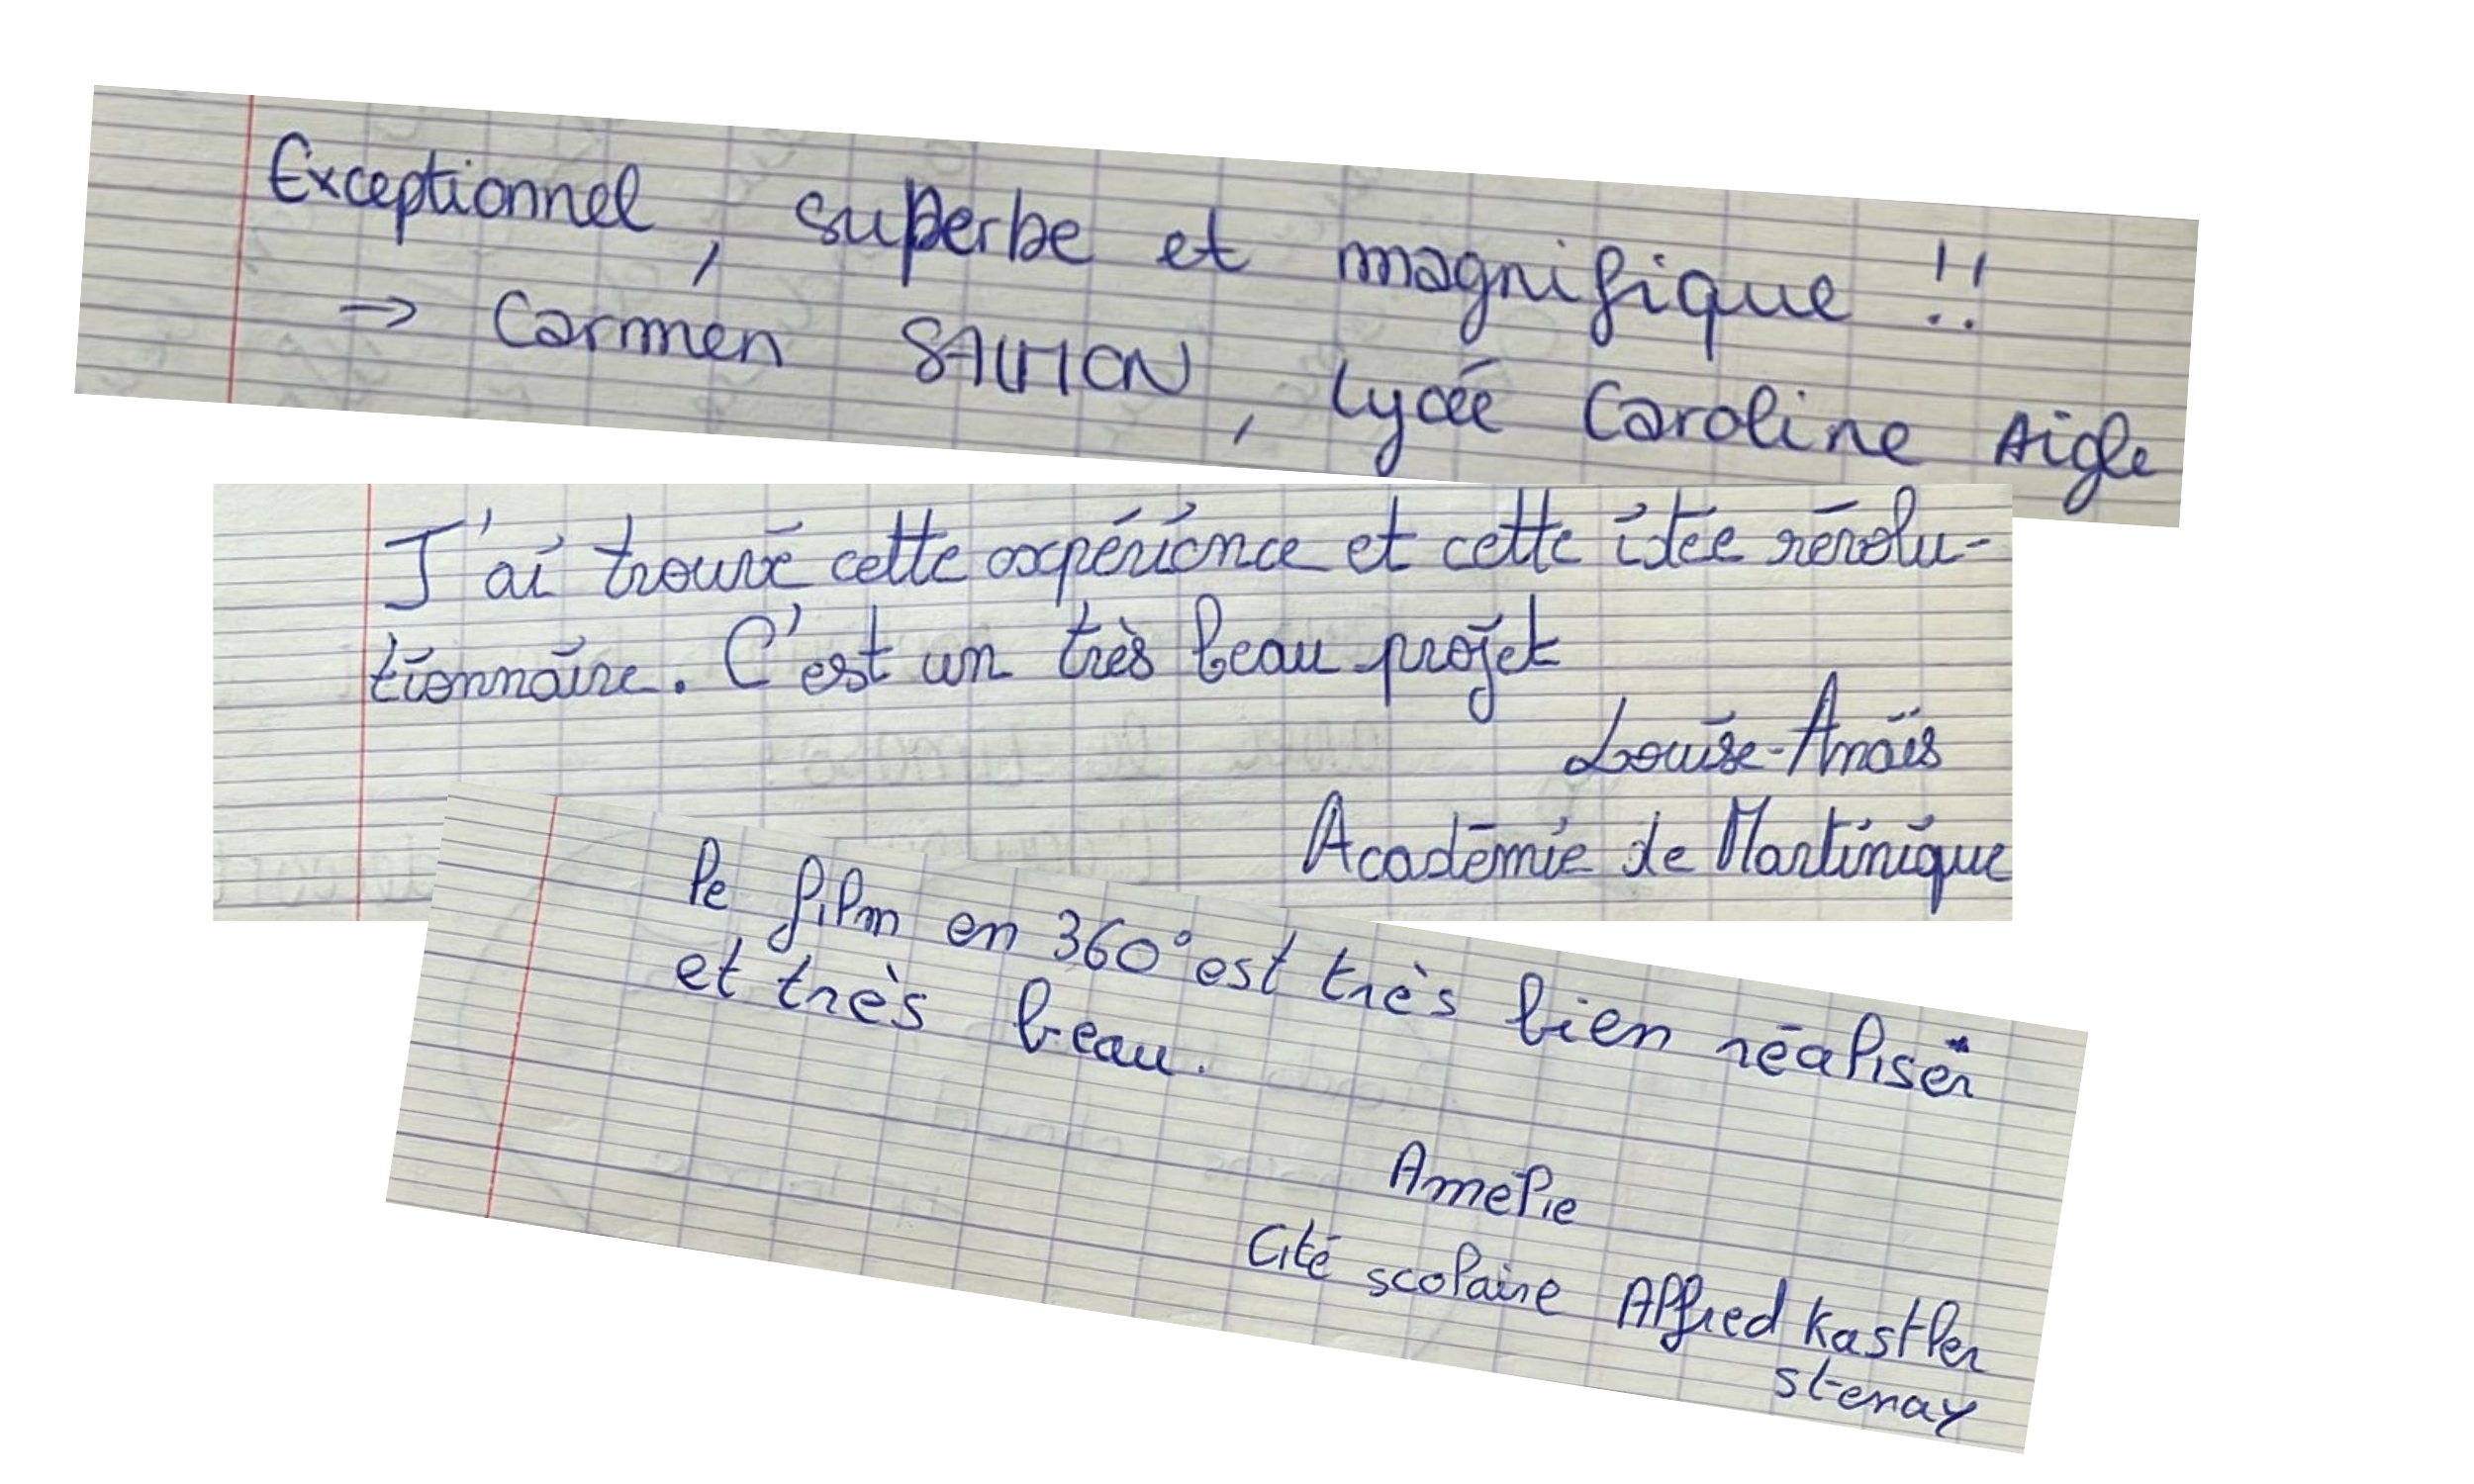 Exceptionnel, superbe et magnifique !!
→ Carmen , Lycée Caroline Aigle
J'ai trouvé cette expérience et cette idée révolu-
tionnaire. C'est un très beau projet
Louise-Anaïs
Académie de Martinique
le film en 360° est très bien réaliser
et très beau.
Amélie
Cité scolaire Alfred Kastler
stenay